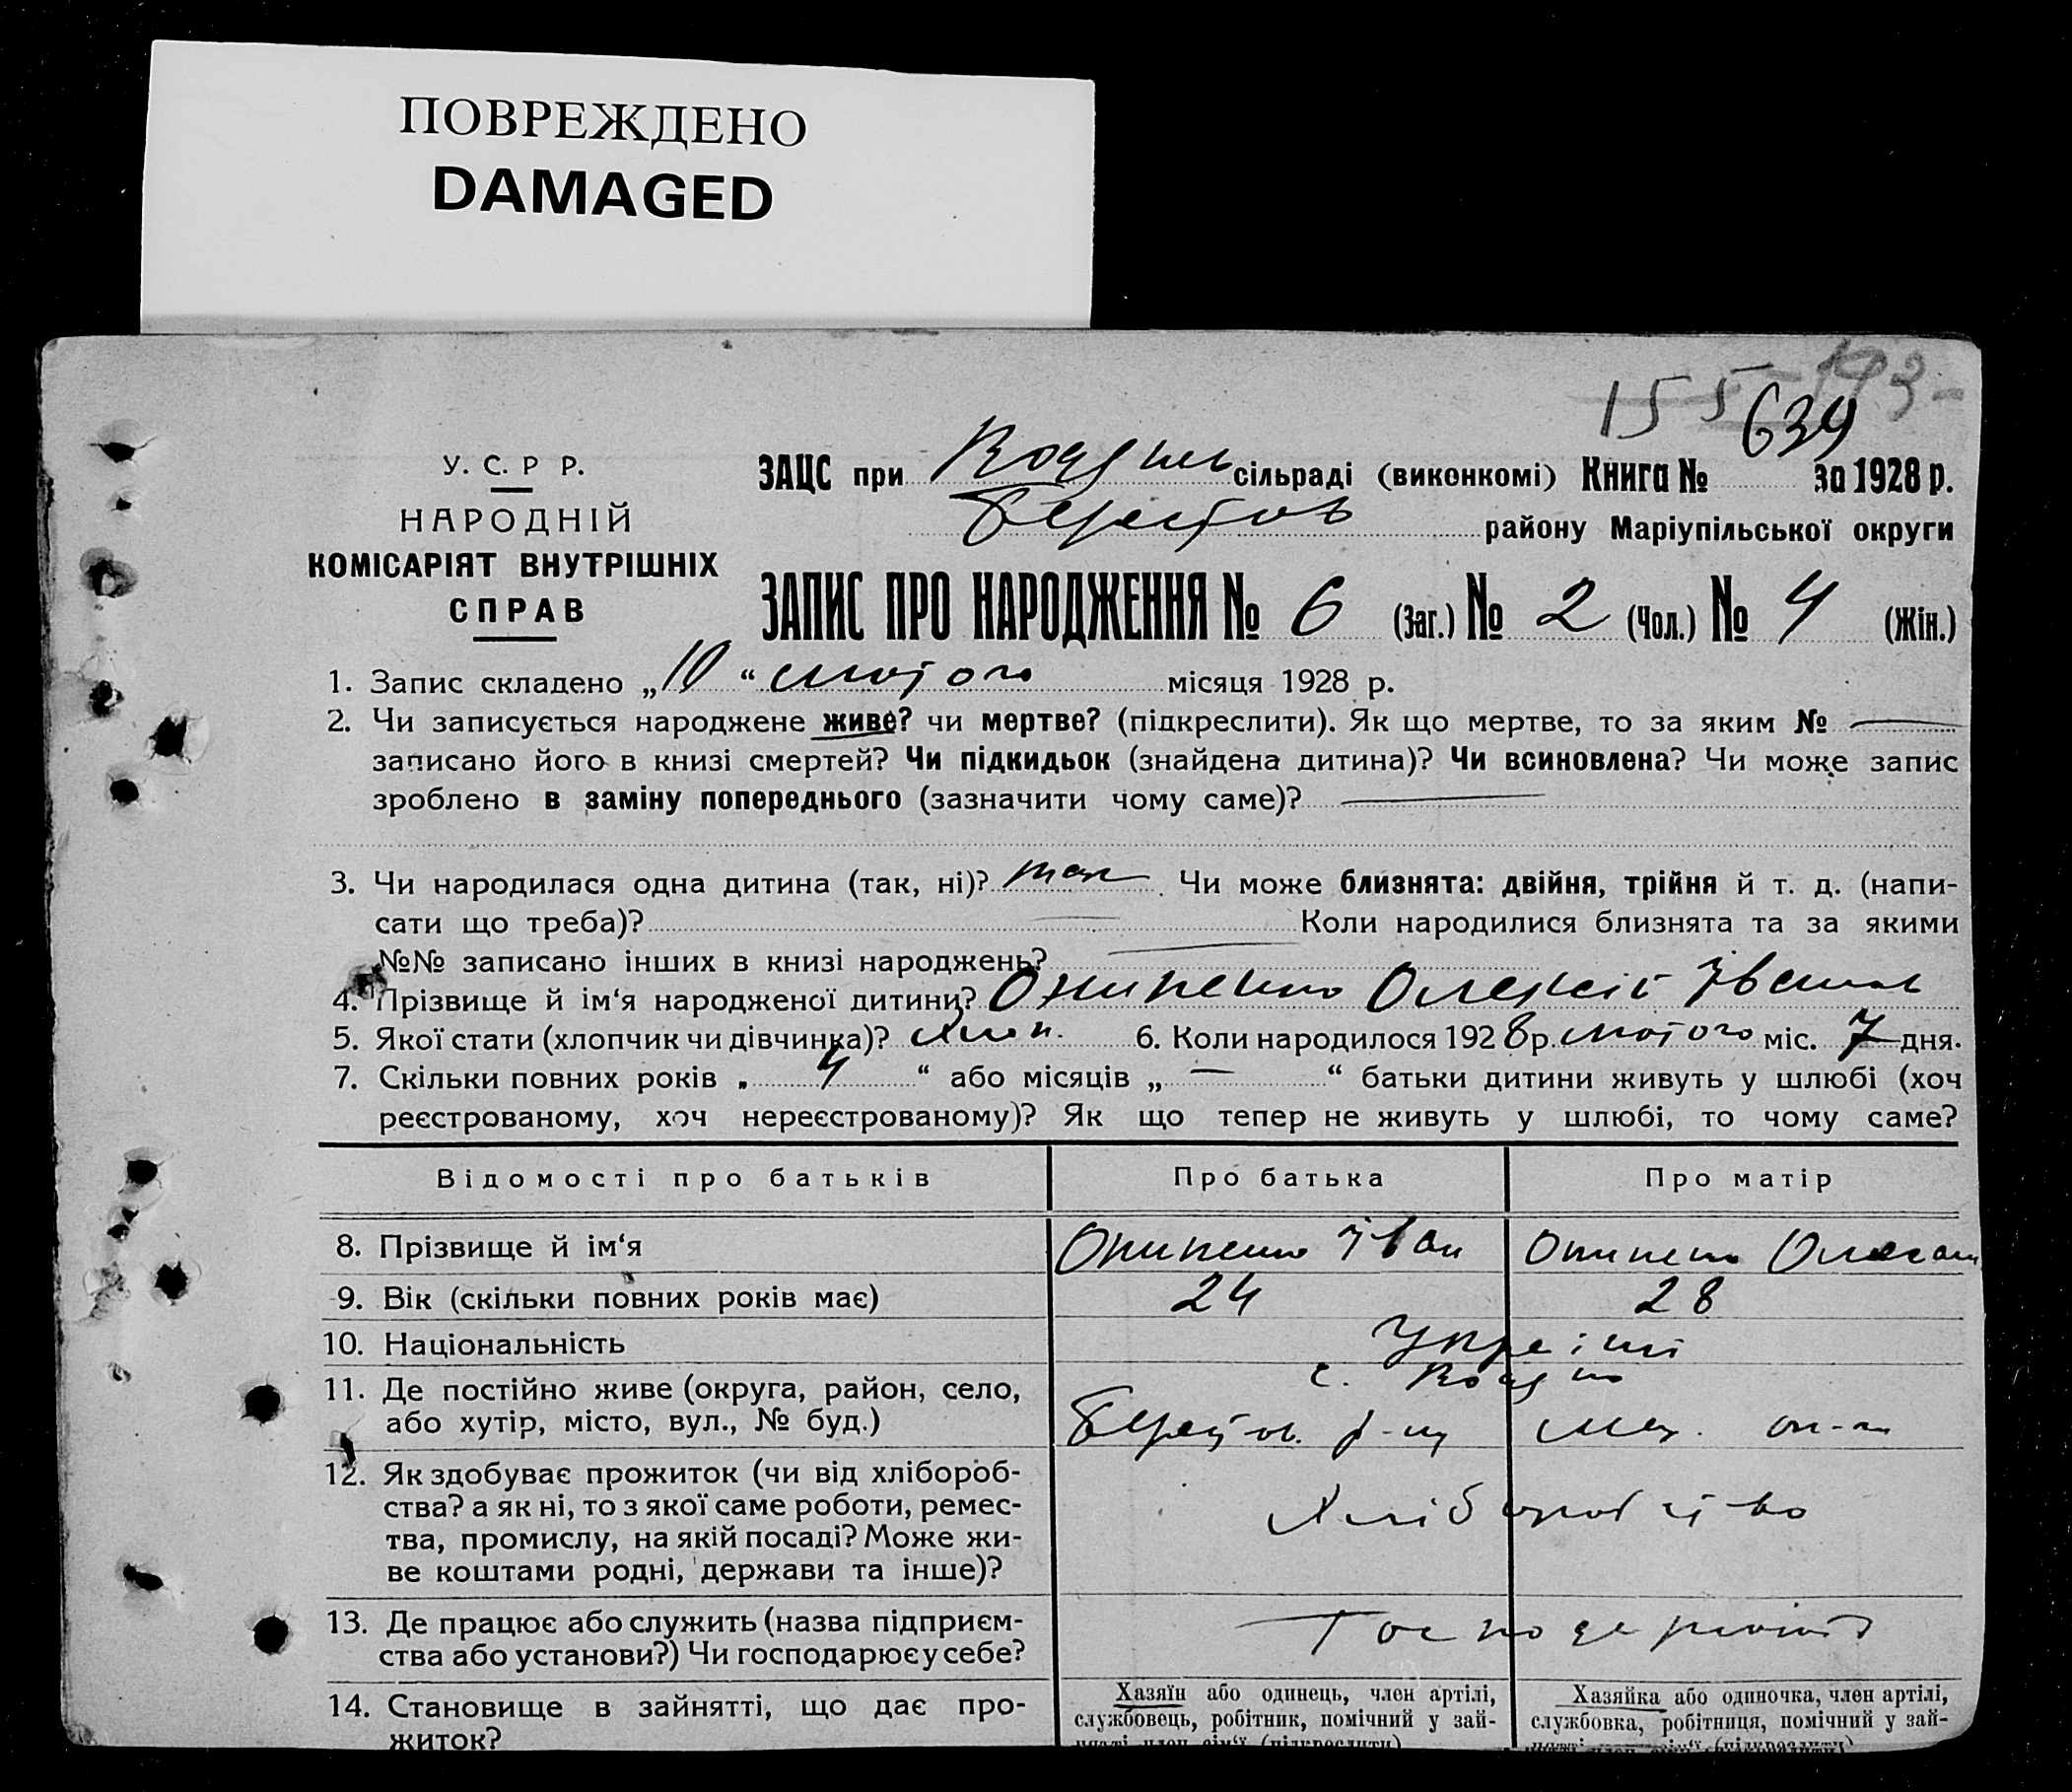 ПОВРЕЖДЕНО
DAMAGED
155
639
У. С. Р Р.
НАРОДНІЙ
КОМІСАРІЯТ ВНУТРІШНІХ
СПРАВ
ЗАЦС при сільраді (виконкомі) Книга № за 1928 р.
Берестов району Маріупільської округи
ЗАПИС ПРО НАРОДЖЕННЯ № 6 (Заг.) № 2 (Чол.) № 4 (Жін.)
1. Запис складено „10“ лютого місяця 1928 р.
2. Чи записується народжене живе? чи мертве? (підкреслити). Як що мертве, то за яким № —
записано його в книзі смертей? Чи підкидьок (знайдена дитина)? Чи всиновлена? Чи може запис
зроблено в заміну попереднього (зазначити чому саме)? —
3. Чи народилася одна дитина (так, ні)? так. Чи може близнята: двійня, трійня й т. д. (напи-
сати що треба)? — Коли народилися близнята та за якими
№№ записано інших в книзі народжень? —
4. Прізвище й ім‘я народженої дитини? Онипенко Олексій Іванов
5. Якої стати (хлопчик чи дівчинка)? Хлоп. 6. Коли народилося 1928 р. лютого міс. 7 дня.
7. Скільки повних років „4“ або місяців „—“ батьки дитини живуть у шлюбі (хоч
реєстрованому, хоч нереєстрованому)? Як що тепер не живуть у шлюбі, то чому саме?
Відомості про батьків Про батька Про матір
8. Прізвище й ім‘я Онипенко Іван Онипенко
9. Вік (скільки повних років має) 24 28
10. Національність Україні
11. Де постійно живе (округа, район, село,
або хутір, місто, вул., № буд.) с. Берестов. р-ну Мар. ок-ги
12. Як здобуває прожиток (чи від хлібороб-
ства? а як ні, то з якої саме роботи, ремес-
тва, промислу, на якій посаді? Може жи-
ве коштами родні, держави та інше)? Хліборобство
13. Де працює або служить (назва підприєм-
ства або установи?) Чи господарює у себе?
14. Становище в зайнятті, що дає про-
житок?
Хазяїн або одинець, член артілі,
службовець, робітник, помічний у зай-
нятті член сім‘ї (підкреслити)
Хазяйка або одиночка, член артілі,
службовка, робітниця, помічний у зай-
нятті член сім‘ї (підкреслити)